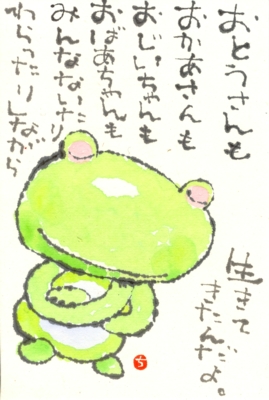 おとうさんも
おかあさんも
おじいちゃんも
おばあちゃんも
みんなないたり
わらったりしながら
生きて
きたんだよ。
ち